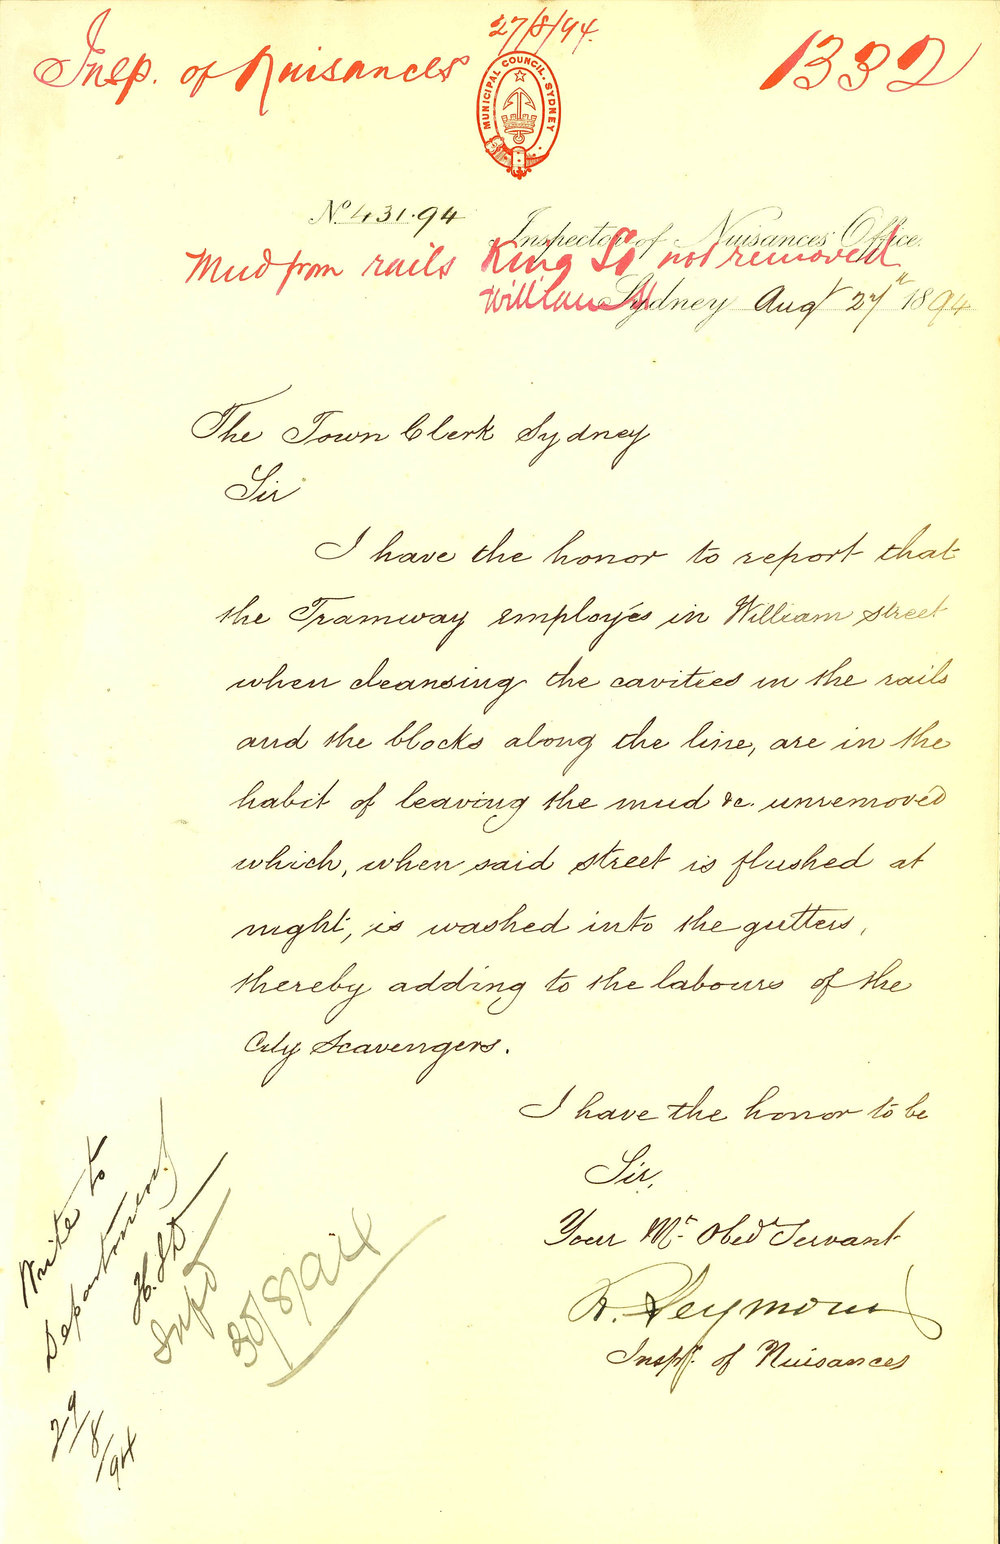 27/8/94.
Insp. of Nuisances
1332
MUNICIPAL COUNCIL. SYDNEY
No. 431.94
Inspector of Nuisances Office.
Mud from rails King St not removed
William St
Sydney Augt 27th 1894
The Town Clerk Sydney
Sir
I have the honor to report that
the Tramway employés in William street
when cleansing the cavities in the rails
and the blocks along the line, are in the
habit of leaving the mud &c. unremoved
which, when said street is flushed at
night, is washed into the gutters,
thereby adding to the labours of the
City Scavengers.
I have the honor to be
Sir,
Your Mt. Obedt Servant
R. Seymour
Inspr. of Nuisances
Write to
Department
29/8/94
30/8/94